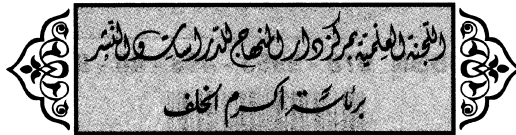 اللجنة العلمية بمركز دار المنهاج للدراسات والنشر
برئاسة أكرم الخلف